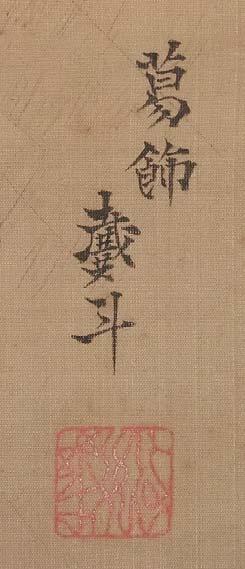 葛飾
戴斗